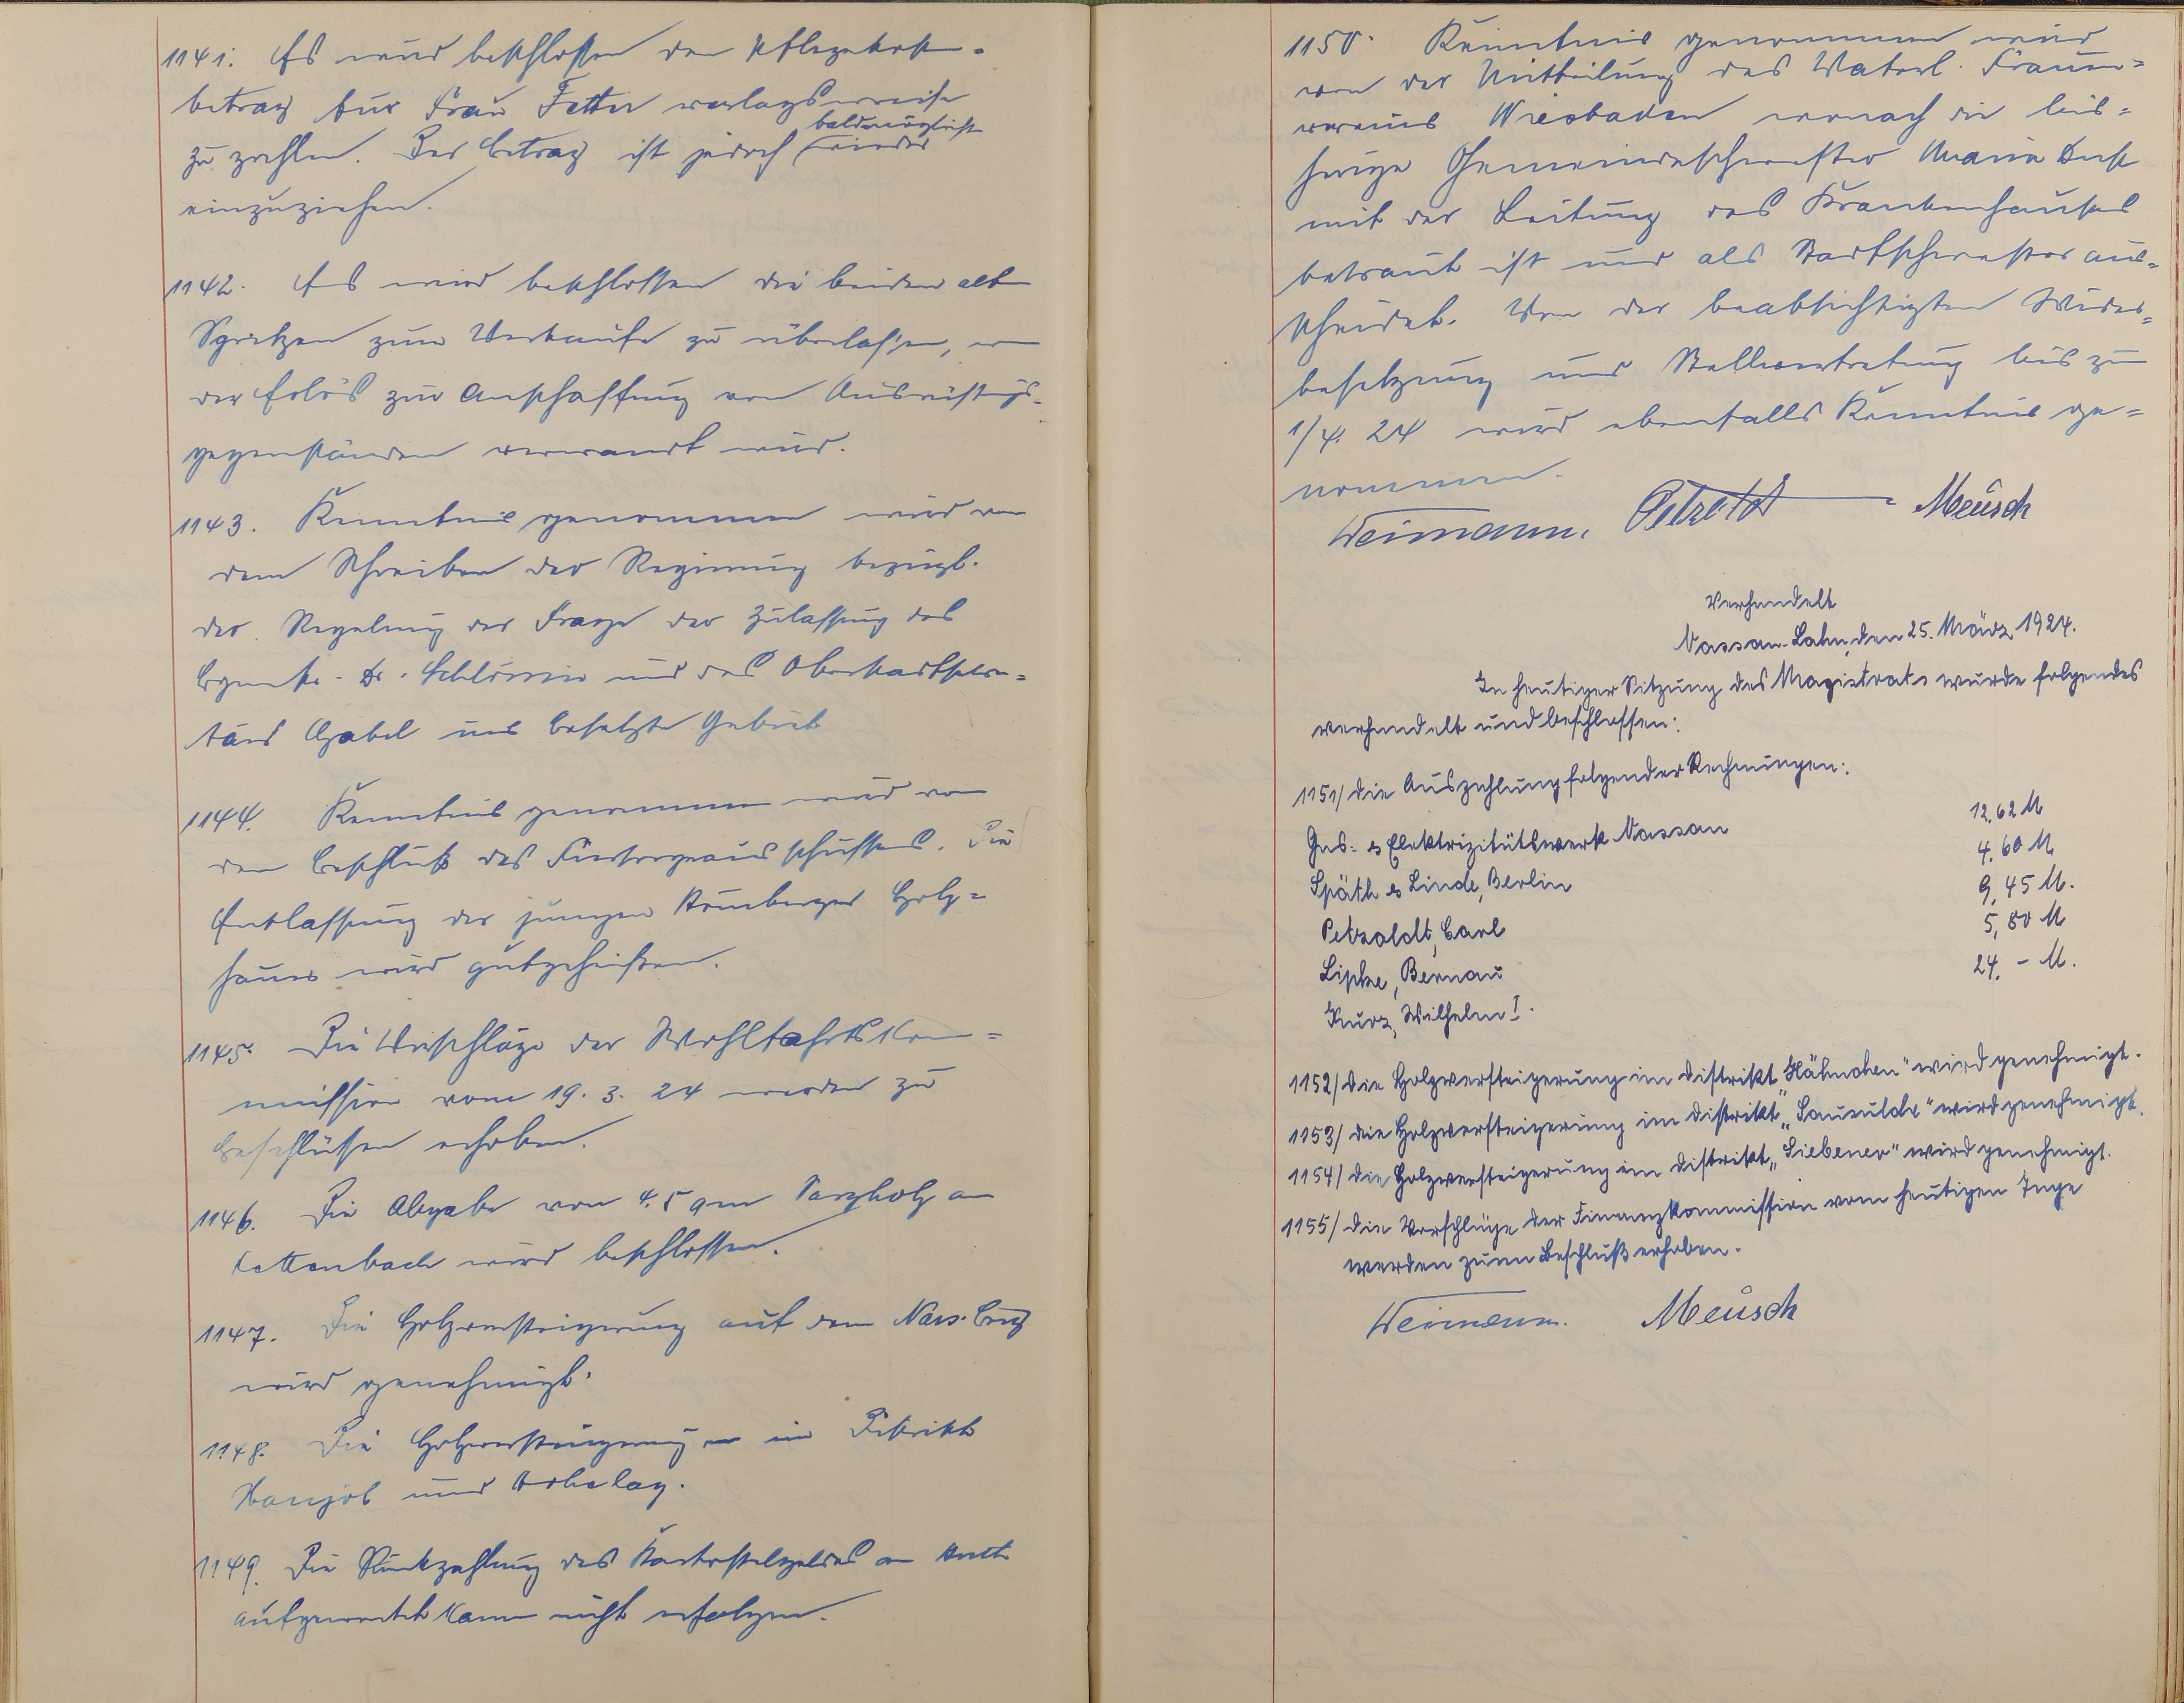 1141. Es wird beschlossen den Pflegekosten-
betrag für Frau Fetter verlagsweise
baldmöglichst
zu zahlen. Der Betrag ist jedoch wieder
einzuziehen.
1142. Es wird beschlossen die beiden alten
Spritzen zum Verkaufe zu überlassen, wenn
der Erlös zur Anschaffung von Ausrüstungs-
gegenständen verwandt wird.
1143. Kenntnis genommen wird von
dem Schreiben der Regierung bezügl.
der Regelung der Frage der Zulassung des
Bgmstr. Dr. und des Oberstadtsekre=
tärs Gabel ins besetzte Gebiet
1144. Kenntnis genommen wird von
dem Beschluß des Fürsorgeausschusses. Die
Entlassung des jungen Holz=
hauer wird gutgeheißen.
1145. Die Vorschläge der Wohlfahrtskom=
mission vom 19. 3. 24 werden zu
Beschlüssen erhoben.
1146. Die Abgabe von 4.5 qm Sargholz an
Dettenbach wird beschlossen.
1147. Die Holzversteigerung auf dem Nass. Berg
wird genehmigt.
1148. Die Holzversteigerungen im Distrikt
und
1149. Die Rückzahlung des Kontrollgeldes an
aufgewertet kann nicht erfolgen.
1150. Kenntnis genommen wird
von der Mitteilung des Vaterl. Frauen=
vereins Wiesbaden wonach die bis=
herige Gemeindeschwester Maria
mit der Leitung des Krankenhauses
betraut ist und als Stadtschwester aus=
scheidet. Von der beabsichtigten Wieder=
besetzung und Stellvertretung bis zum
1/4. 24 wird ebenfalls Kenntnis ge=
nommen.
Weimann. Petzoldt Meusch
Verhandelt
Nassau-Lahn, den 25. März 1924.
In heutiger Sitzung des Magistrats wurde folgendes
verhandelt und beschlossen:
1151/ die Auszahlung folgender Rechnungen:
Gas- & Elektrizitätswerk Nassau 12,62 M
Späth & Linde, Berlin 4,60 M
Petzoldt, Carl 9,45 M.
Lipke, Bernau 5,80 M
Kurz, Wilhelm I. 24,- M.
1152/ die Holzversteigerung im Distrikt "Hähnchen" wird genehmigt.
1153/ die Holzversteigerung im Distrikt "" wird genehmigt.
1154/ die Holzversteigerung im Distrikt "Siebener" wird genehmigt.
1155/ die Vorschläge der Finanzkommission vom heutigen Tage
werden zum Beschluß erhoben.
Weimann. Meusch